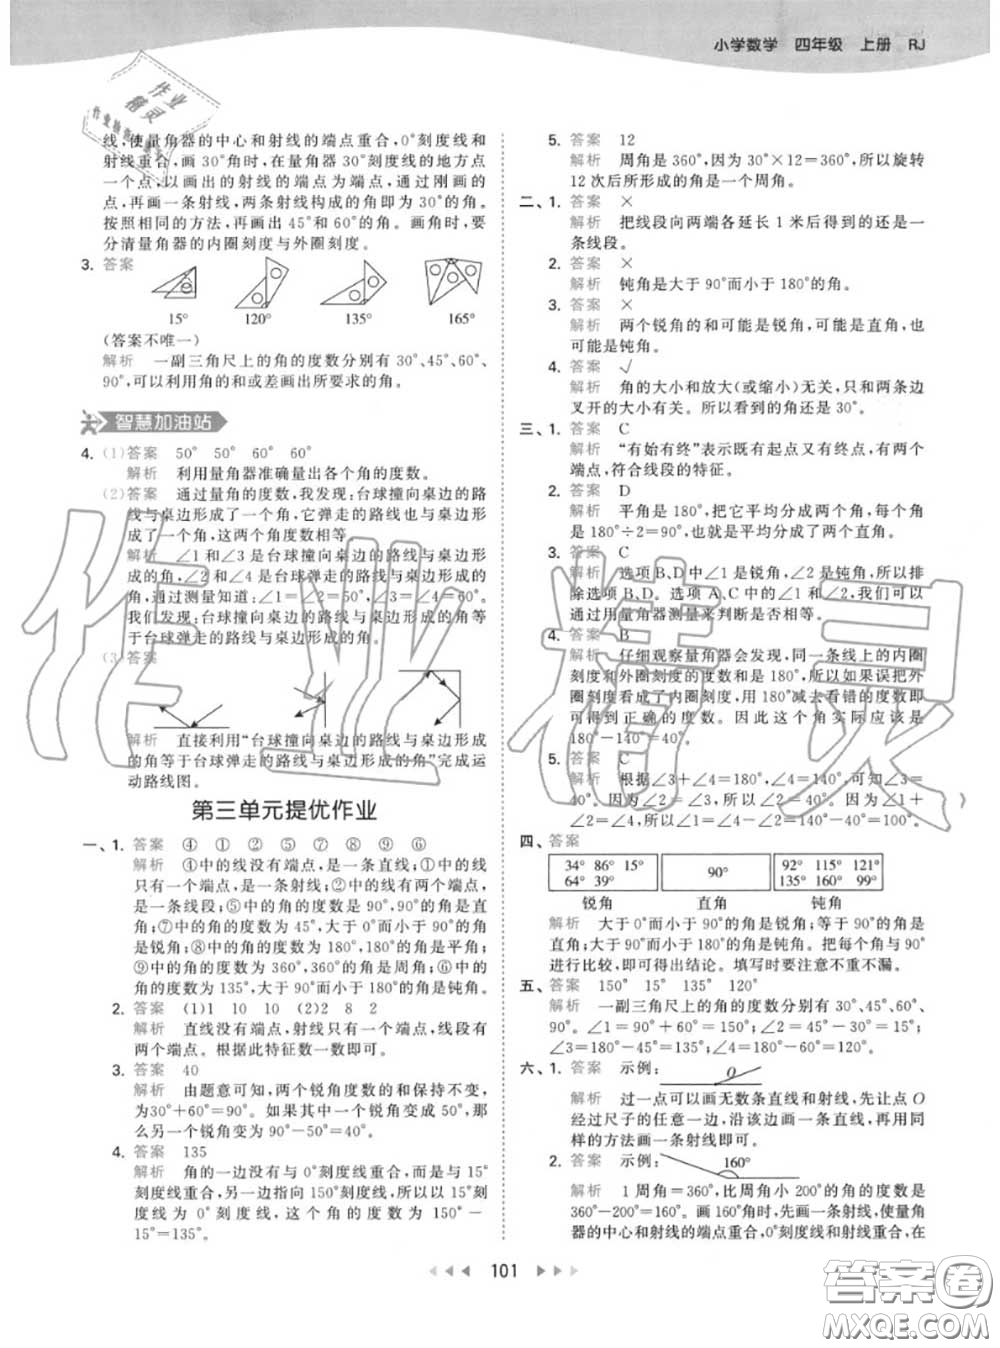 小学数学 四年级 上册 RJ
作业
精灵
线,使量角器的中心和射线的端点重合,0°刻度线和
射线重合,画30°角时,在量角器30°刻度线的地方点
一个点,以画出的射线的端点为端点,通过刚画的
点,再画一条射线,两条射线构成的角即为30°的角。
按照相同的方法,再画出45°和60°的角。画角时,要
分清量角器的内圈刻度与外圈刻度。
3. 答案
15° 120° 135° 165°
(答案不唯一)
解析 一副三角尺上的角的度数分别有30°、45°、60°、
90°,可以利用角的和或差画出所要求的角。
智慧加油站
4. (1)答案 50° 50° 60° 60°
解析 利用量角器准确量出各个角的度数。
(2)答案 通过量角的度数,我发现:台球撞向桌边的路
线与桌边形成了一个角,它弹走的路线也与桌边形
成了一个角,这两个角度数相等。
解析 ∠1和∠3是台球撞向桌边的路线与桌边形
成的角,∠2和∠4是台球弹走的路线与桌边形成的
角,通过测量知道:∠1=∠2=50°,∠3=∠4=60°。
我们发现:台球撞向桌边的路线与桌边形成的角等
于台球弹走的路线与桌边形成的角。
(3)答案
解析 直接利用“台球撞向桌边的路线与桌边形成
的角等于台球弹走的路线与桌边形成的角”完成运
动路线图。
第三单元提优作业
一、1. 答案 ④ ① ② ⑤ ⑦ ⑧ ⑨ ⑥
解析 ④中的线没有端点,是一条直线;①中的线
只有一个端点,是一条射线;②中的线有两个端点,
是一条线段;⑤中的角的度数是90°,90°的角是直
角;⑦中的角的度数为45°,大于0°而小于90°的角是
锐角;⑧中的角的度数为180°,180°的角是平角;
⑨中的角的度数为360°,360°的角是周角;⑥中的
角的度数为135°,大于90°而小于180°的角是钝角。
2. 答案 (1)1 10 10 (2)2 8 2
解析 直线没有端点,射线只有一个端点,线段有
两个端点。根据此特征数一数即可。
3. 答案 40
解析 由题意可知,两个锐角度数的和保持不变,
为30°+60°=90°。如果其中一个锐角变成50°,那
么另一个锐角变为90°-50°=40°。
4. 答案 135
解析 角的一边没有与0°刻度线重合,而是与15°
刻度线重合,另一边指向150°刻度线,所以以15°刻
度线为0°刻度线,这个角的度数为150°-
15°=135°。
5. 答案 12
解析 周角是360°,因为30°×12=360°,所以旋转
12次后所形成的角是一个周角。
二、1. 答案 ×
解析 把线段向两端各延长1米后得到的还是一
条线段。
2. 答案 ×
解析 钝角是大于90°而小于180°的角。
3. 答案 ×
解析 两个锐角的和可能是锐角,可能是直角,也
可能是钝角。
4. 答案 √
解析 角的大小和放大(或缩小)无关,只和两条边
叉开的大小有关。所以看到的角还是30°。
三、1. 答案 C
解析 “有始有终”表示既有起点又有终点,有两个
端点,符合线段的特征。
2. 答案 D
解析 平角是180°,把它平均分成两个角,每个角
是180°÷2=90°,也就是平均分成了两个直角。
3. 答案 C
解析 选项B、D中∠1是锐角,∠2是钝角,所以排
除选项B、D。选项A、C中的∠1和∠2,我们可以
通过用量角器测量来判断是否相等。
4. 答案 B
解析 仔细观察量角器会发现,同一条线上的内圈
刻度和外圈刻度的度数和是180°,所以如果误把外
圈刻度看成了内圈刻度,用180°减去看错的度数即
可得到正确的度数。因此这个角实际应该是
180°-140°=40°。
5. 答案 C
解析 根据∠3+∠4=180°,∠4=140°,可知∠3=
180°-∠4=180°-140°=40°。因为∠1+
∠2=∠4,所以∠1=∠4-∠2=140°-40°=100°。
四、答案
34° 86° 15° 90° 92° 115° 121°
64° 39° 135° 160° 99°
锐角 直角 钝角
解析 大于0°而小于90°的角是锐角;等于90°的角是
直角;大于90°而小于180°的角是钝角。把每个角与90°
进行比较,即可得出结论。填写时要注意不重不漏。
五、答案 150° 15° 135° 120°
解析 一副三角尺上的角的度数分别有30°、45°、60°、
90°。∠1=90°+60°=150°;∠2=45°-30°=15°;
∠3=180°-45°=135°;∠4=180°-60°=120°。
六、1. 答案 示例: O
解析 过一点可以画无数条直线和射线,先让点O
经过尺子的任意一边,沿该边画一条直线,再用同
样的方法画一条射线即可。
2. 答案 示例: 160°
解析 1周角=360°,比周角小200°的角的度数是
360°-200°=160°。画160°角时,先画一条射线,使量角
器的中心和射线的端点重合,0°刻度线和射线重合,在
101
作业精灵
答案圈
MXQE.COM